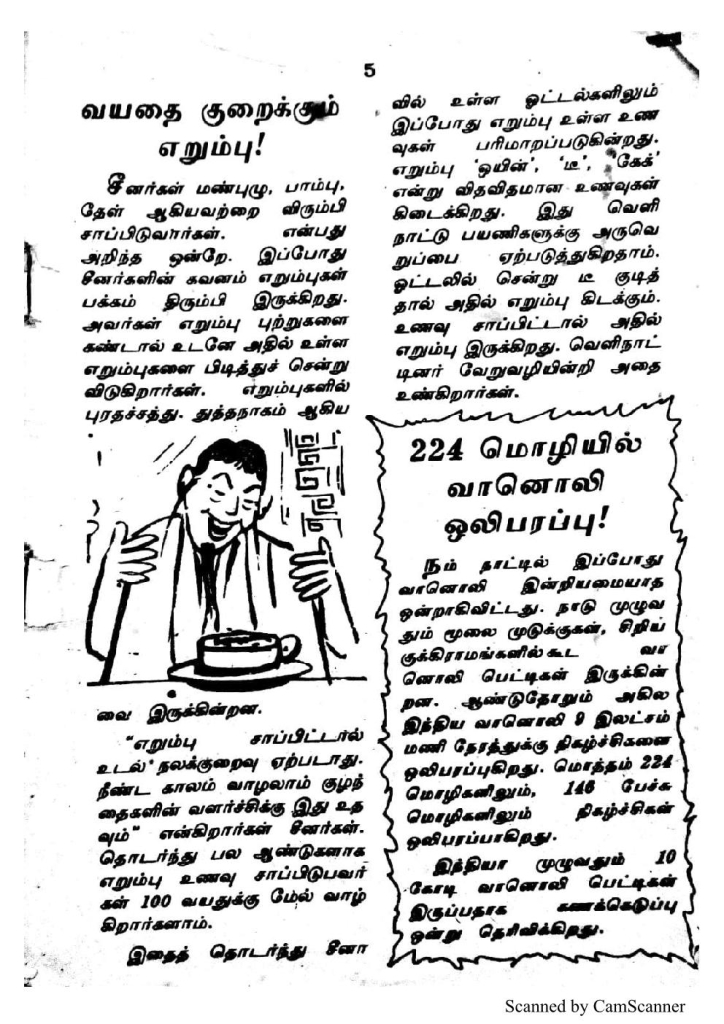 5
வயதை குறைக்கும்
எறும்பு!
சீனர்கள் மண்புழு, பாம்பு,
தேள் ஆகியவற்றை விரும்பி
சாப்பிடுவார்கள். என்பது
அறிந்த ஒன்றே. இப்போது
சீனர்களின் கவனம் எறும்புகள்
பக்கம் திரும்பி இருக்கிறது.
அவர்கள் எறும்பு புற்றுகளை
கண்டால் உடனே அதில் உள்ள
எறும்புகளை பிடித்துச் சென்று
விடுகிறார்கள். எறும்புகளில்
புரதச்சத்து. துத்தநாகம் ஆகிய
வை இருக்கின்றன.
"எறும்பு சாப்பிட்டால்
உடல் நலக்குறைவு ஏற்படாது.
நீண்ட காலம் வாழலாம் குழந்
தைகளின் வளர்ச்சிக்கு இது உத
வும்" என்கிறார்கள் சீனர்கள்.
தொடர்ந்து பல ஆண்டுகளாக
எறும்பு உணவு சாப்பிடுபவர்
கள் 100 வயதுக்கு மேல் வாழ்
கிறார்களாம்.
இதைத் தொடர்ந்து சீனா
வில் உள்ள ஓட்டல்களிலும்
இப்போது எறும்பு உள்ள உண
வுகள் பரிமாறப்படுகின்றது.
எறும்பு 'ஒயின்', 'டீ', 'கேக்'
என்று விதவிதமான உணவுகள்
கிடைக்கிறது. இது வெளி
நாட்டு பயணிகளுக்கு அருவெ
றுப்பை ஏற்படுத்துகிறதாம்.
ஓட்டலில் சென்று டீ குடித்
தால் அதில் எறும்பு கிடக்கும்.
உணவு சாப்பிட்டால் அதில்
எறும்பு இருக்கிறது. வெளிநாட்
டினர் வேறுவழியின்றி அதை
உண்கிறார்கள்.
224 மொழியில்
வானொலி
ஒலிபரப்பு!
நம் நாட்டில் இப்போது
வானொலி இன்றியமையாத
ஒன்றாகிவிட்டது. நாடு முழுவ
தும் மூலை முடுக்குகள், சிறிய
குக்கிராமங்களில்கூட வா
னொலி பெட்டிகள் இருக்கின்
றன. ஆண்டுதோறும் அகில
இந்திய வானொலி 9 இலட்சம்
மணி நேரத்துக்கு நிகழ்ச்சிகளை
ஒலிபரப்புகிறது. மொத்தம் 224
மொழிகளிலும், 146 பேச்சு
மொழிகளிலும் நிகழ்ச்சிகள்
ஒலிபரப்பாகிறது.
இந்தியா முழுவதும் 10
கோடி வானொலி பெட்டிகள்
இருப்பதாக கணக்கெடுப்பு
ஒன்று தெரிவிக்கிறது.
Scanned by CamScanner